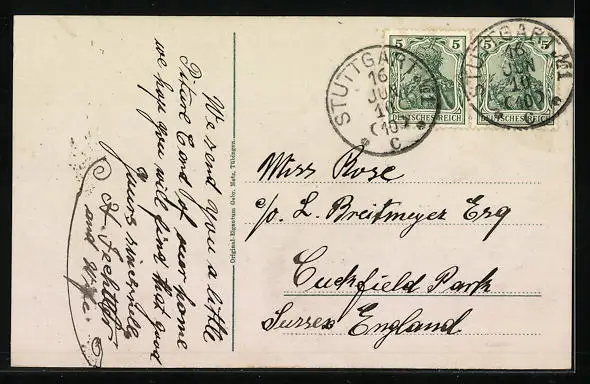 We send you a little
Picture Card of our home
we hope you will find that good
yours sincerely
and Wife.
Original-Eigentum Gebr. Metz, Tübingen.
STUTTGART No 1
16
JUN
10
(10)
C
5 5
DEUTSCHES REICH
STUTTGART No 1
16
JUN
10
(10)
C
5 5
DEUTSCHES REICH
Miss Rose
c/o. L. Breitmeyer Esq
Cuckfield Park
Sussex England